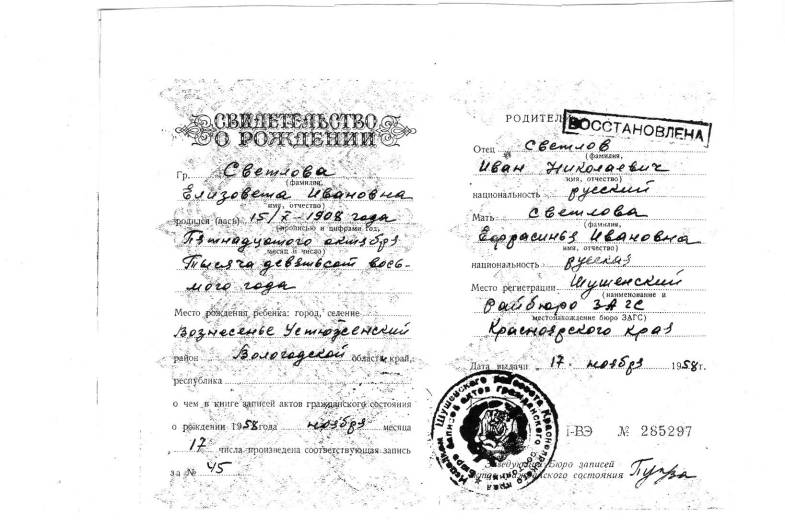 СВИДЕТЕЛЬСТВО
О РОЖДЕНИИ
Гр. Светлова
(фамилия,
Елизовета Ивановна
имя, отчество)
родился (ась) 15/X-1908 года
(прописью и цифрами год,
Пятнадцатого октября
месяц и число)
Тысяча девятьсот вось-
мого года
Место рождения ребенка: город, селение
Вознесенье Устюженский
район Вологодской область, край,
республика
о чем в книге записей актов гражданского состояния
о рождении 1958 года ноября месяца
17 числа произведена соответствующая запись
за № 45
РОДИТЕЛИ
ВОССТАНОВЛЕНА
Отец Светлов
(фамилия,
Иван Николаевич
имя, отчество)
национальность русский
Мать Светлова
(фамилия,
Ефрасинья Ивановна
имя, отчество)
национальность русская
Место регистрации Шушенский
(наименование и
Райбюро ЗАГС
местонахождение бюро ЗАГС)
Красноярского края
Дата выдачи 17 ноября 1958 г.
I-ВЭ № 285297
Заведующий Бюро записей
актов гражданского состояния